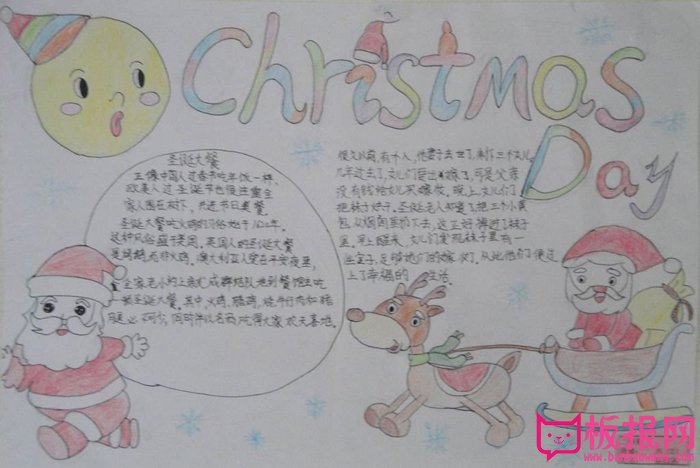 Christmas
Day
圣诞大餐
正像中国人过春节吃年饭一样、
欧美人过圣诞节也很注重全
家人围在树下,共进节日美餐
圣诞大餐吃火鸡的习俗始于1620年。
这种风俗盛于美国。英国人的圣诞大餐
是烤鹅,而非火鸡。澳大利亚人爱在平安夜里,
全家老小约上亲友成群结队地到餐馆去吃
一顿圣诞大餐。其中,火鸡、腊鸡、烧牛仔肉和猪
必不可少,同时伴以名酒,吃得大家欢天喜地。
很久以前,有个人,他妻子去世了,三个女儿
几年过去了,女儿们 嫁了,可是父亲
没有钱给女儿买嫁妆,晚上,女儿们
把袜子 子。圣诞老人知道了把三个小黄
包从烟囱里扔下去,这正好掉进了袜子
里。早上醒来,女儿们发现袜子里有一
些金子,足够她们的嫁妆了。从此他们便过
上了幸福的 生活。
板报网